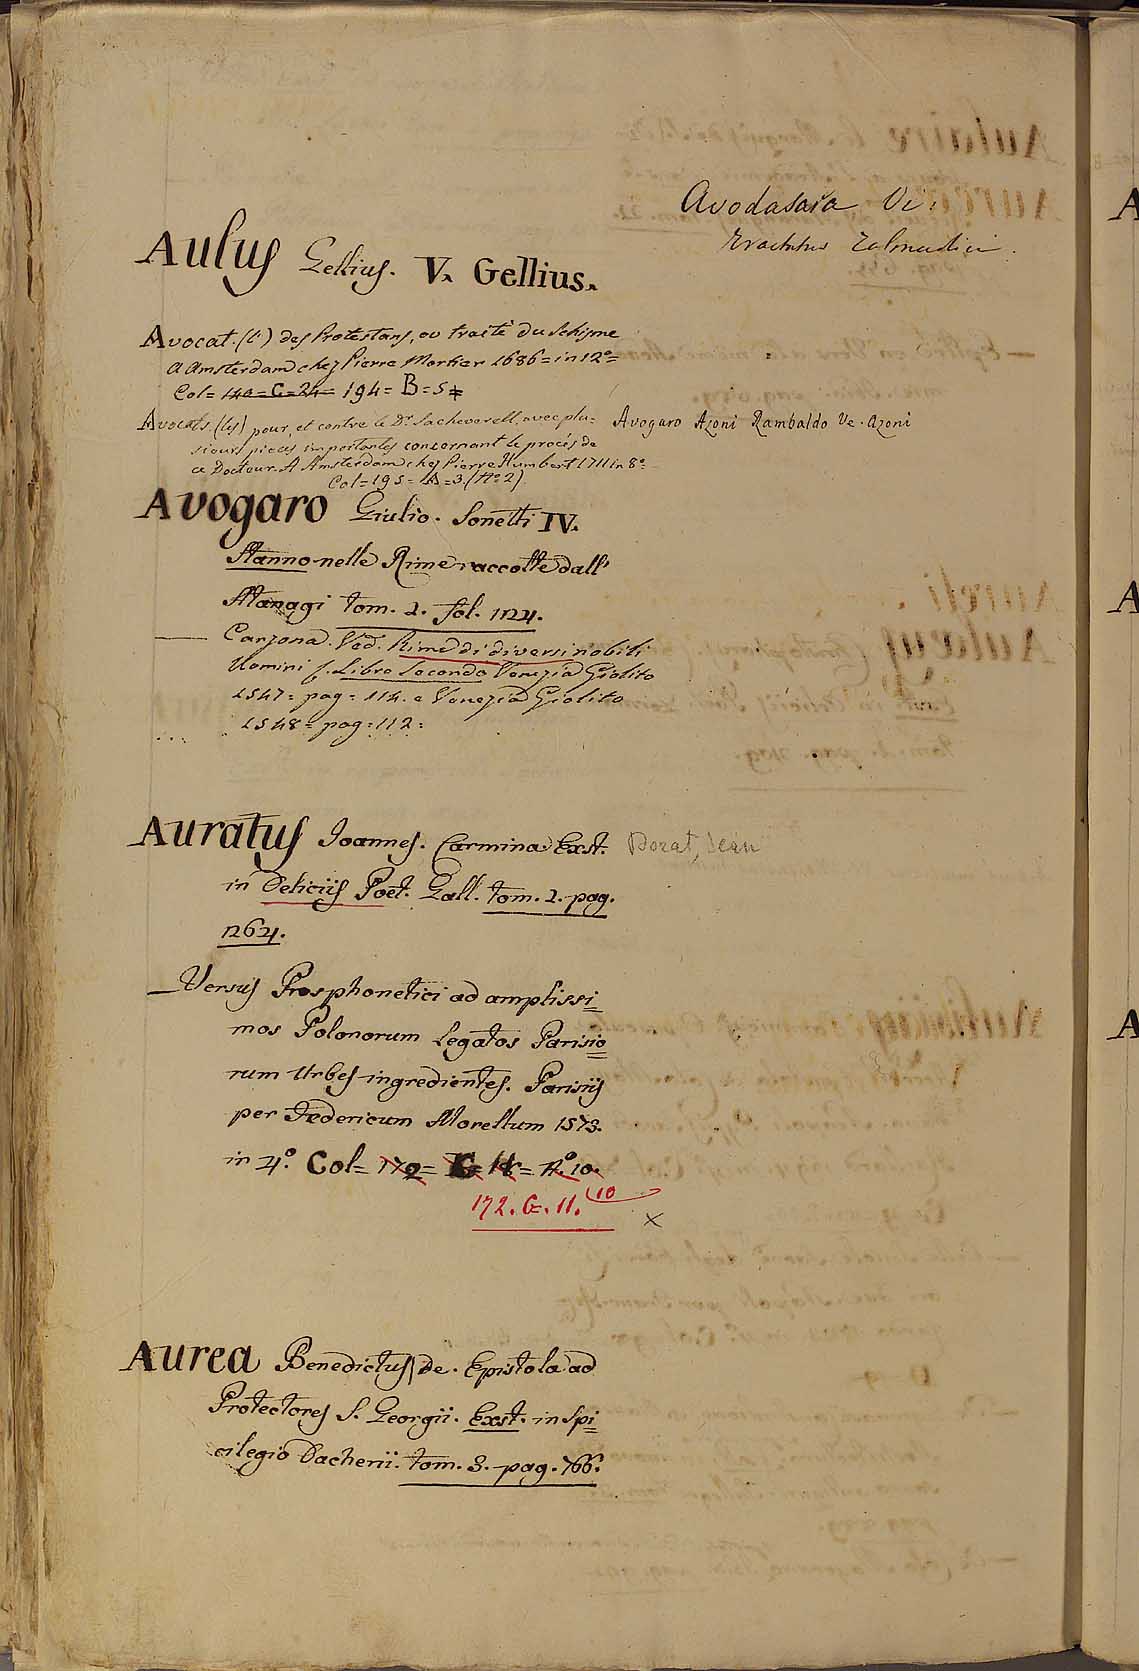 Avodasara Ve.
Tractatus Talmudici.
Aulus Gellius. V. Gellius.
Avocat. (l') des Protestans, ou traité du Schisme
A Amsterdam chez Pierre Mortier 1686 = in 12°=
Col = 140 = C = 24 = 194 = B = 5
Avocats (les) pour, et contre le Dr. Sacheverell, avec plu=
sieurs pieces importantes concernant le procés de
ce Docteur. A Amsterdam chez Pierre Humbert 1711 in 8°
Col = 195 = A = 3. (N° 2)
Avogaro Azoni Rambaldo Ve. Azoni
Avogaro Giulio. Sonetti IV.
Stanno nelle Rime raccolte dall'
Atanagi tom. 2. fol. 124.
— Canzona. Ved. Rime di diversi nobili
Uomini f. Libro Secondo Venezia Giolito
1547 = pag = 114. e Venezia Giolito
1548 = pag = 112 =
Auratus Joannes. Carmina Exst. Dorat, Jean
in Deliciis Poet. Gall. tom. 1. pag.
264.
— Versus Prosphonetici ad amplissi=
mos Polonorum Legatos Parisio=
rum Urbes ingredientes. Parisiis
per Federicum Morellum 1573.
in 4°. Col = 172 = G = 18 = N° 10.
172. G. 11. 10
x
Aurea Benedictus de. Epistola ad
Protectores S. Georgii. Exst. in Spi=
cilegio Dacherii. tom. 3. pag. 766.